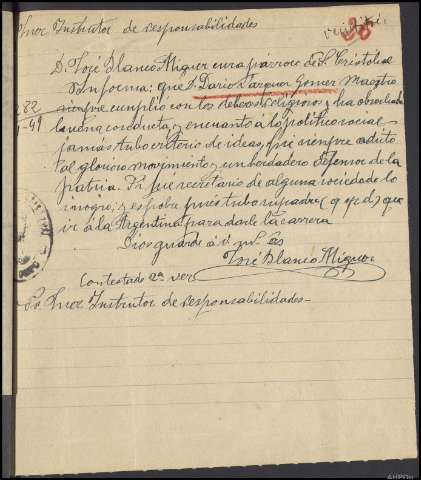 Snor Instrutor de responsabilidades
28
D. José Blanco Miguez cura párroco de S. Cristobal
Informa: que D. Dario Vazquez Gomez Maestro
siempre cumplio con los deberes religiosos, y ha observado
buena conducta, y en cuanto á lo politico social
jamás tubo criterio de ideas, que siempre adicto
al glorioso movimiento y un berdadero defensor de la
patria. Si fué secretario de alguna sociedade lo
inogro, y es pobre pues tubo su padre (q. e. p. d.) que
ir á la Argentina para darle la carrera
Dios guarde á V. ms. as
José Blanco Miguez
Contestado 2ª vez
Sr Snor Instrutor de responsabilidades-